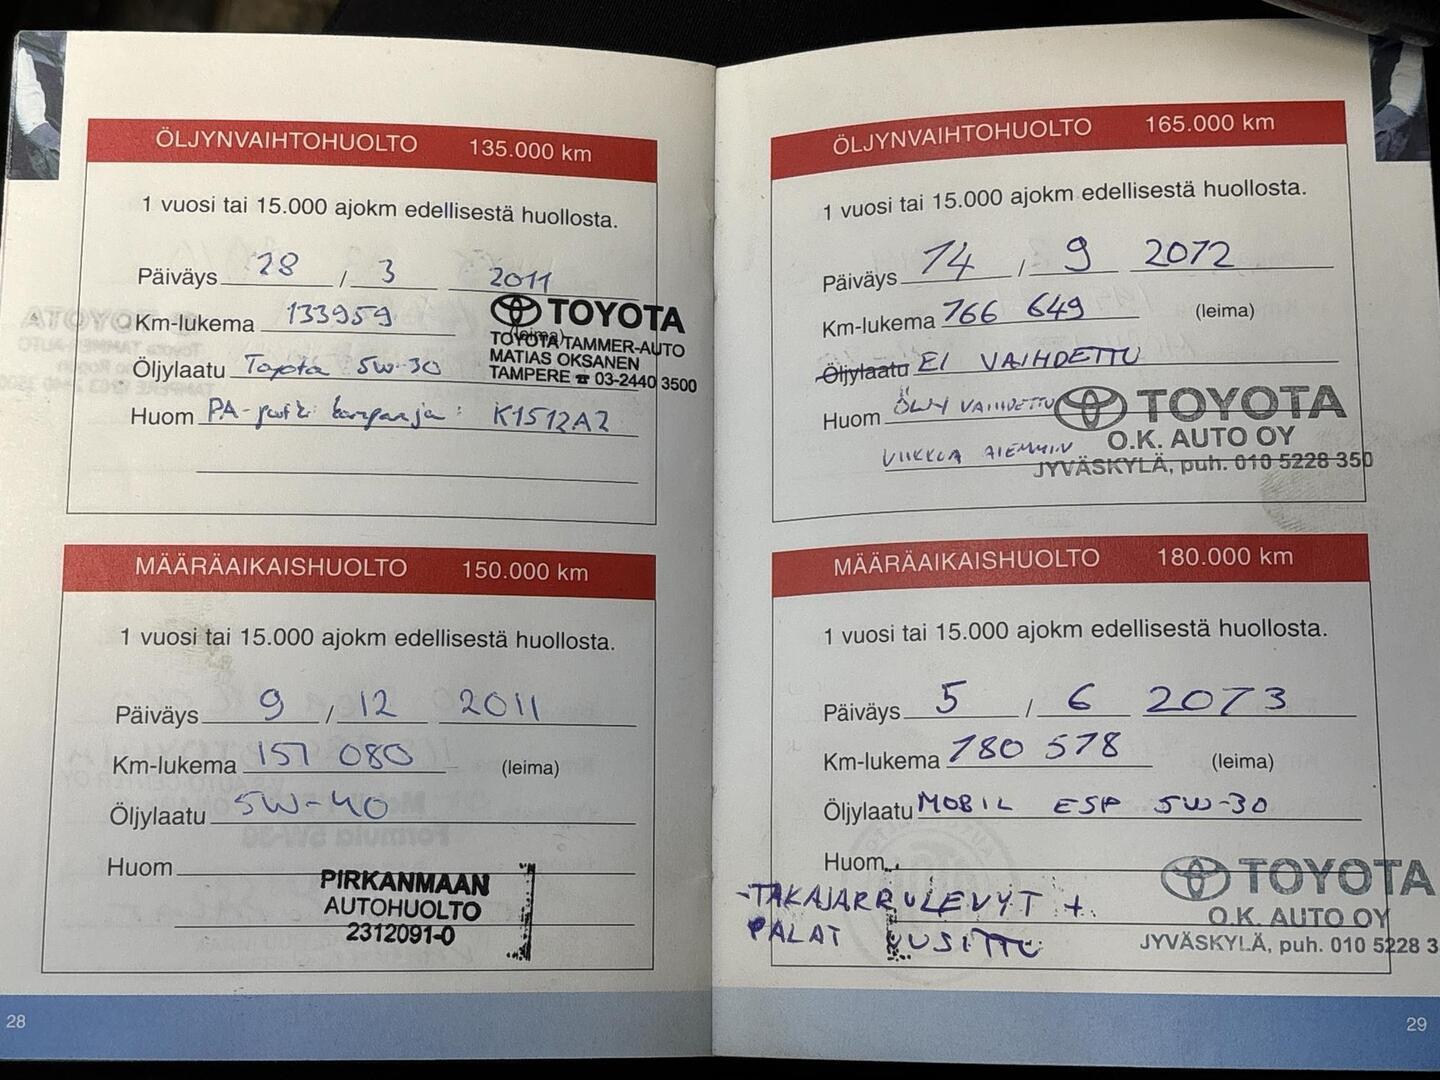 ÖLJYNVAIHTOHUOLTO 135.000 km
1 vuosi tai 15.000 ajokm edellisestä huollosta.
Päiväys 28 / 3 2011
Km-lukema 133959 (leima)
Öljylaatu Toyota 5W-30
Huom PA-putki kampanja: K1512A2
TOYOTA
TOYOTA TAMMER-AUTO
MATIAS OKSANEN
TAMPERE ☎ 03-2440 3500
MÄÄRÄAIKAISHUOLTO 150.000 km
1 vuosi tai 15.000 ajokm edellisestä huollosta.
Päiväys 9 / 12 2011
Km-lukema 151 080 (leima)
Öljylaatu 5W-40
Huom
PIRKANMAAN
AUTOHUOLTO
2312091-0
28
ÖLJYNVAIHTOHUOLTO 165.000 km
1 vuosi tai 15.000 ajokm edellisestä huollosta.
Päiväys 14 / 9 2012
Km-lukema 166 649 (leima)
Öljylaatu EI VAIHDETTU
Huom ÖLJY VAIHDETTU
VIIKKOA AIEMMIN
TOYOTA
O.K. AUTO OY
JYVÄSKYLÄ, puh. 010 5228 350
MÄÄRÄAIKAISHUOLTO 180.000 km
1 vuosi tai 15.000 ajokm edellisestä huollosta.
Päiväys 5 / 6 2013
Km-lukema 180 578 (leima)
Öljylaatu MOBIL ESP 5W-30
Huom
-TAKAJARRULEVYT +
PALAT UUSITTU
TOYOTA
O.K. AUTO OY
JYVÄSKYLÄ, puh. 010 5228 3
29